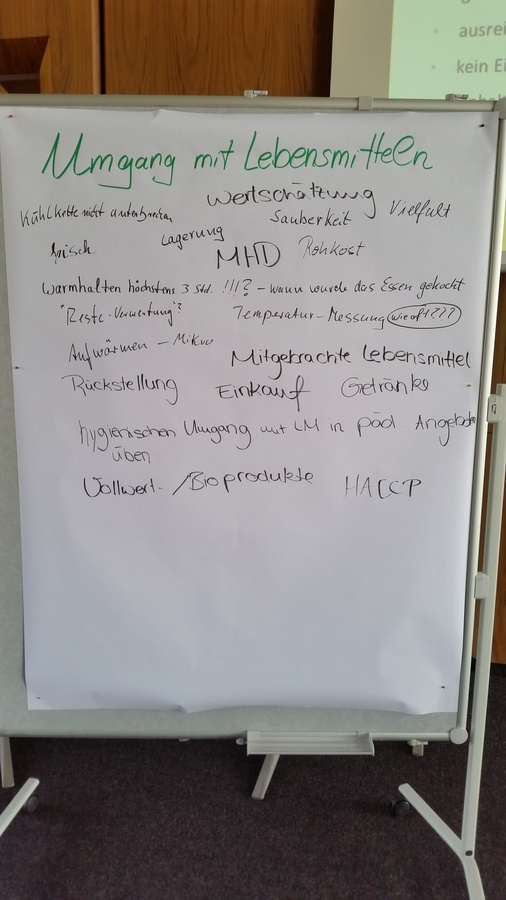 ausrei
kein Ei
Umgang mit Lebensmitteln
Wertschätzung
Kühlkette nicht unterbrechen Sauberkeit Vielfalt
frisch Lagerung MHD Rohkost
Warmhalten höchstens 3 Std. !!!? – wann wurde das Essen gekocht
"Reste-Verwertung"? Temperatur-Messung wie oft???
Aufwärmen – Mikro Mitgebrachte Lebensmittel
Rückstellung Einkauf Getränke
hygienischen Umgang mit LM in päd. Angeboten
üben
Vollwert- /Bioprodukte HACCP